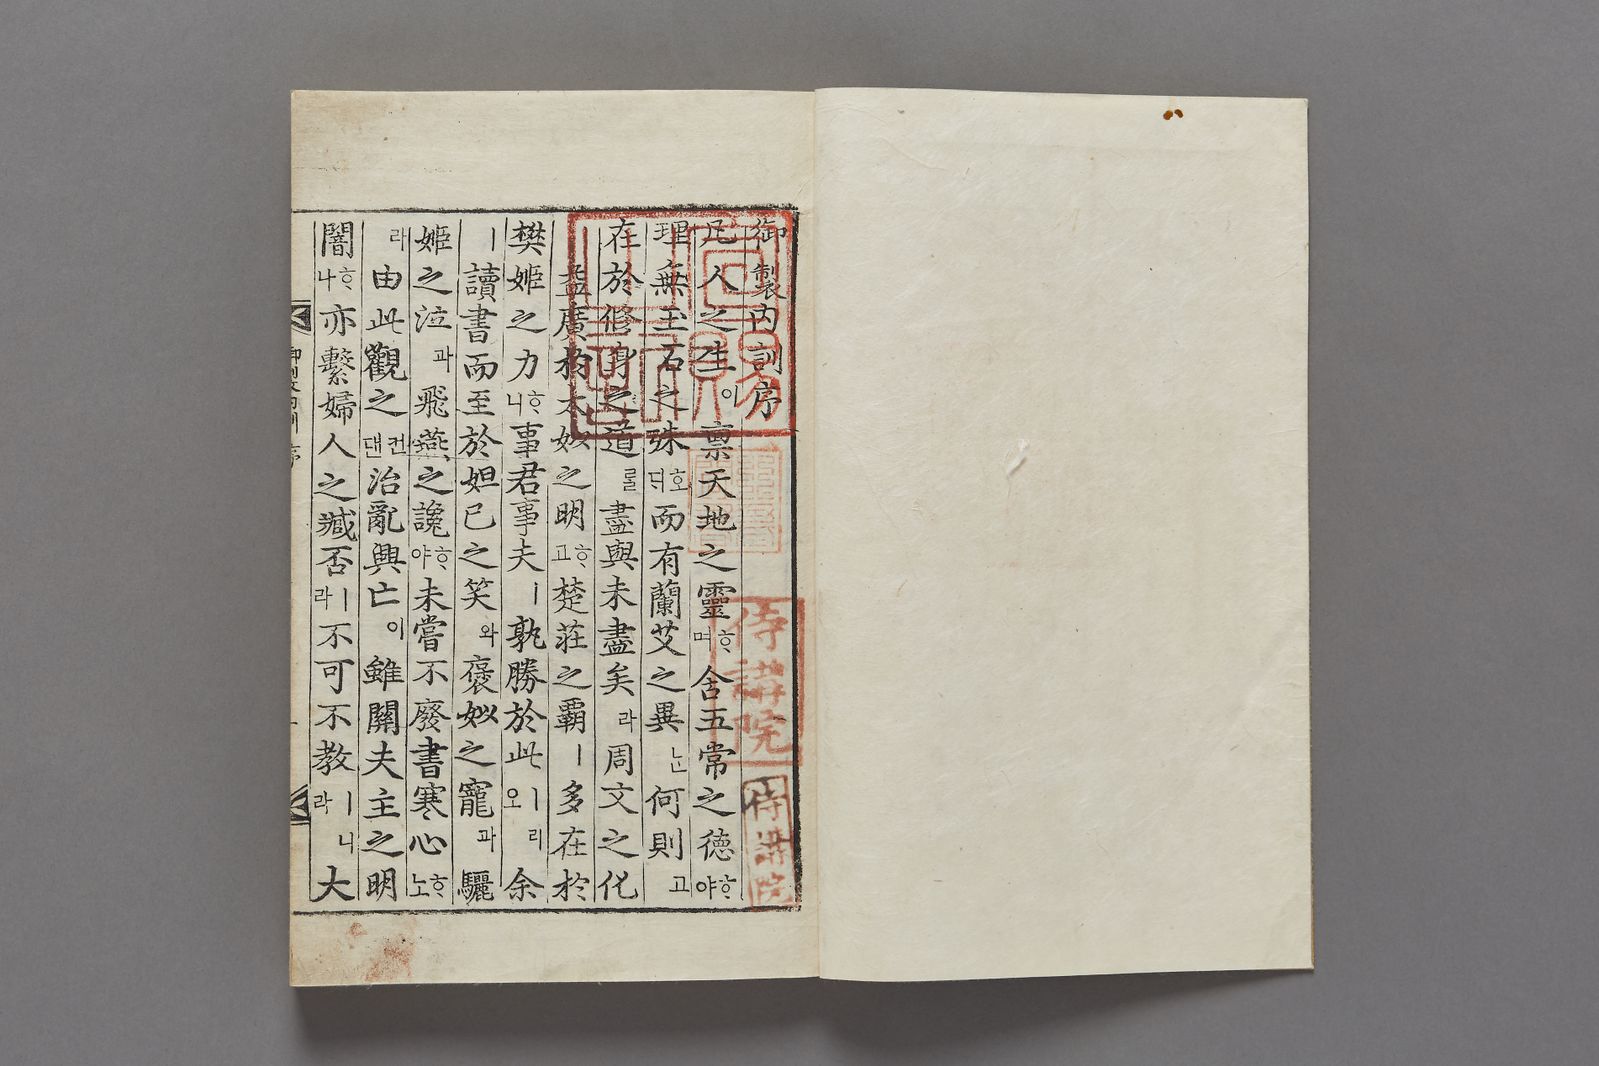 御製內訓序
凡人之生이稟天地之靈ᄒᆞ며含五常之德ᄒᆞ야
理無玉石之殊호ᄃᆡ而有蘭艾之異ᄂᆞᆫ何則고
在於修身之道ᄅᆞᆯ盡與未盡矣라周文之化
益廣於太姒之明ᄒᆞ고楚莊之霸ㅣ多在於
樊姬之力ᄒᆞ니事君事夫ㅣ孰勝於此ㅣ리오余
ㅣ讀書而至於妲己之笑와褒姒之寵과驪
姬之泣과飛燕之讒ᄒᆞ야未嘗不廢書寒心ᄒᆞ노
라由此觀之컨댄治亂興亡이雖關夫主之明
闇ᄒᆞ나亦繫婦人之臧否ㅣ라不可不敎ㅣ니라大
侍講院
侍講院